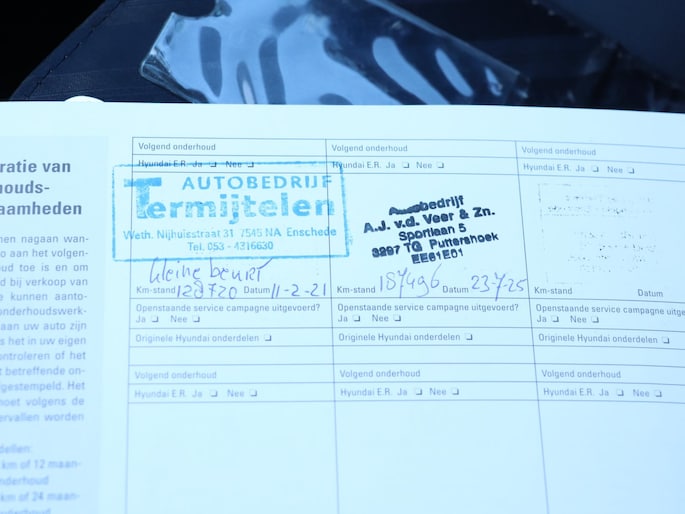 ratie van
houds-
aamheden
nen nagaan wan-
o aan het volgen-
oud toe is en om
d bij verkoop van
e kunnen aanto-
onderhoudswerk-
aan uw auto zijn
s het in uw eigen
ontroleren of het
t betreffende on-
fgestempeld. Het
moet volgens de
ervallen worden
dellen:
km of 12 maan-
nderhoud
km of 24 maan-
Volgend onderhoud
Hyundai E.R. Ja Nee
AUTOBEDRIJF
Termijtelen
Weth. Nijhuisstraat 31 7545 NA Enschede
Tel. 053 - 4316630
kleine beurt
Km-stand 128720 Datum 11-2-21
Openstaande service campagne uitgevoerd?
Ja Nee
Originele Hyundai onderdelen
Volgend onderhoud
Hyundai E.R. Ja Nee
Volgend onderhoud
Hyundai E.R. Ja Nee
Autobedrijf
A.J. v.d. Veer & Zn.
Sportlaan 5
3297 TG Puttershoek
EE61E01
Km-stand 187496 Datum 23-7-25
Openstaande service campagne uitgevoerd?
Ja Nee
Originele Hyundai onderdelen
Volgend onderhoud
Hyundai E.R. Ja Nee
Volgend onderhoud
Hyundai E.R. Ja Nee
Km-stand Datum
Openstaande service campagne uitge
Ja Nee
Originele Hyundai onderdelen
Volgend onderhoud
Hyundai E.R. Ja Nee